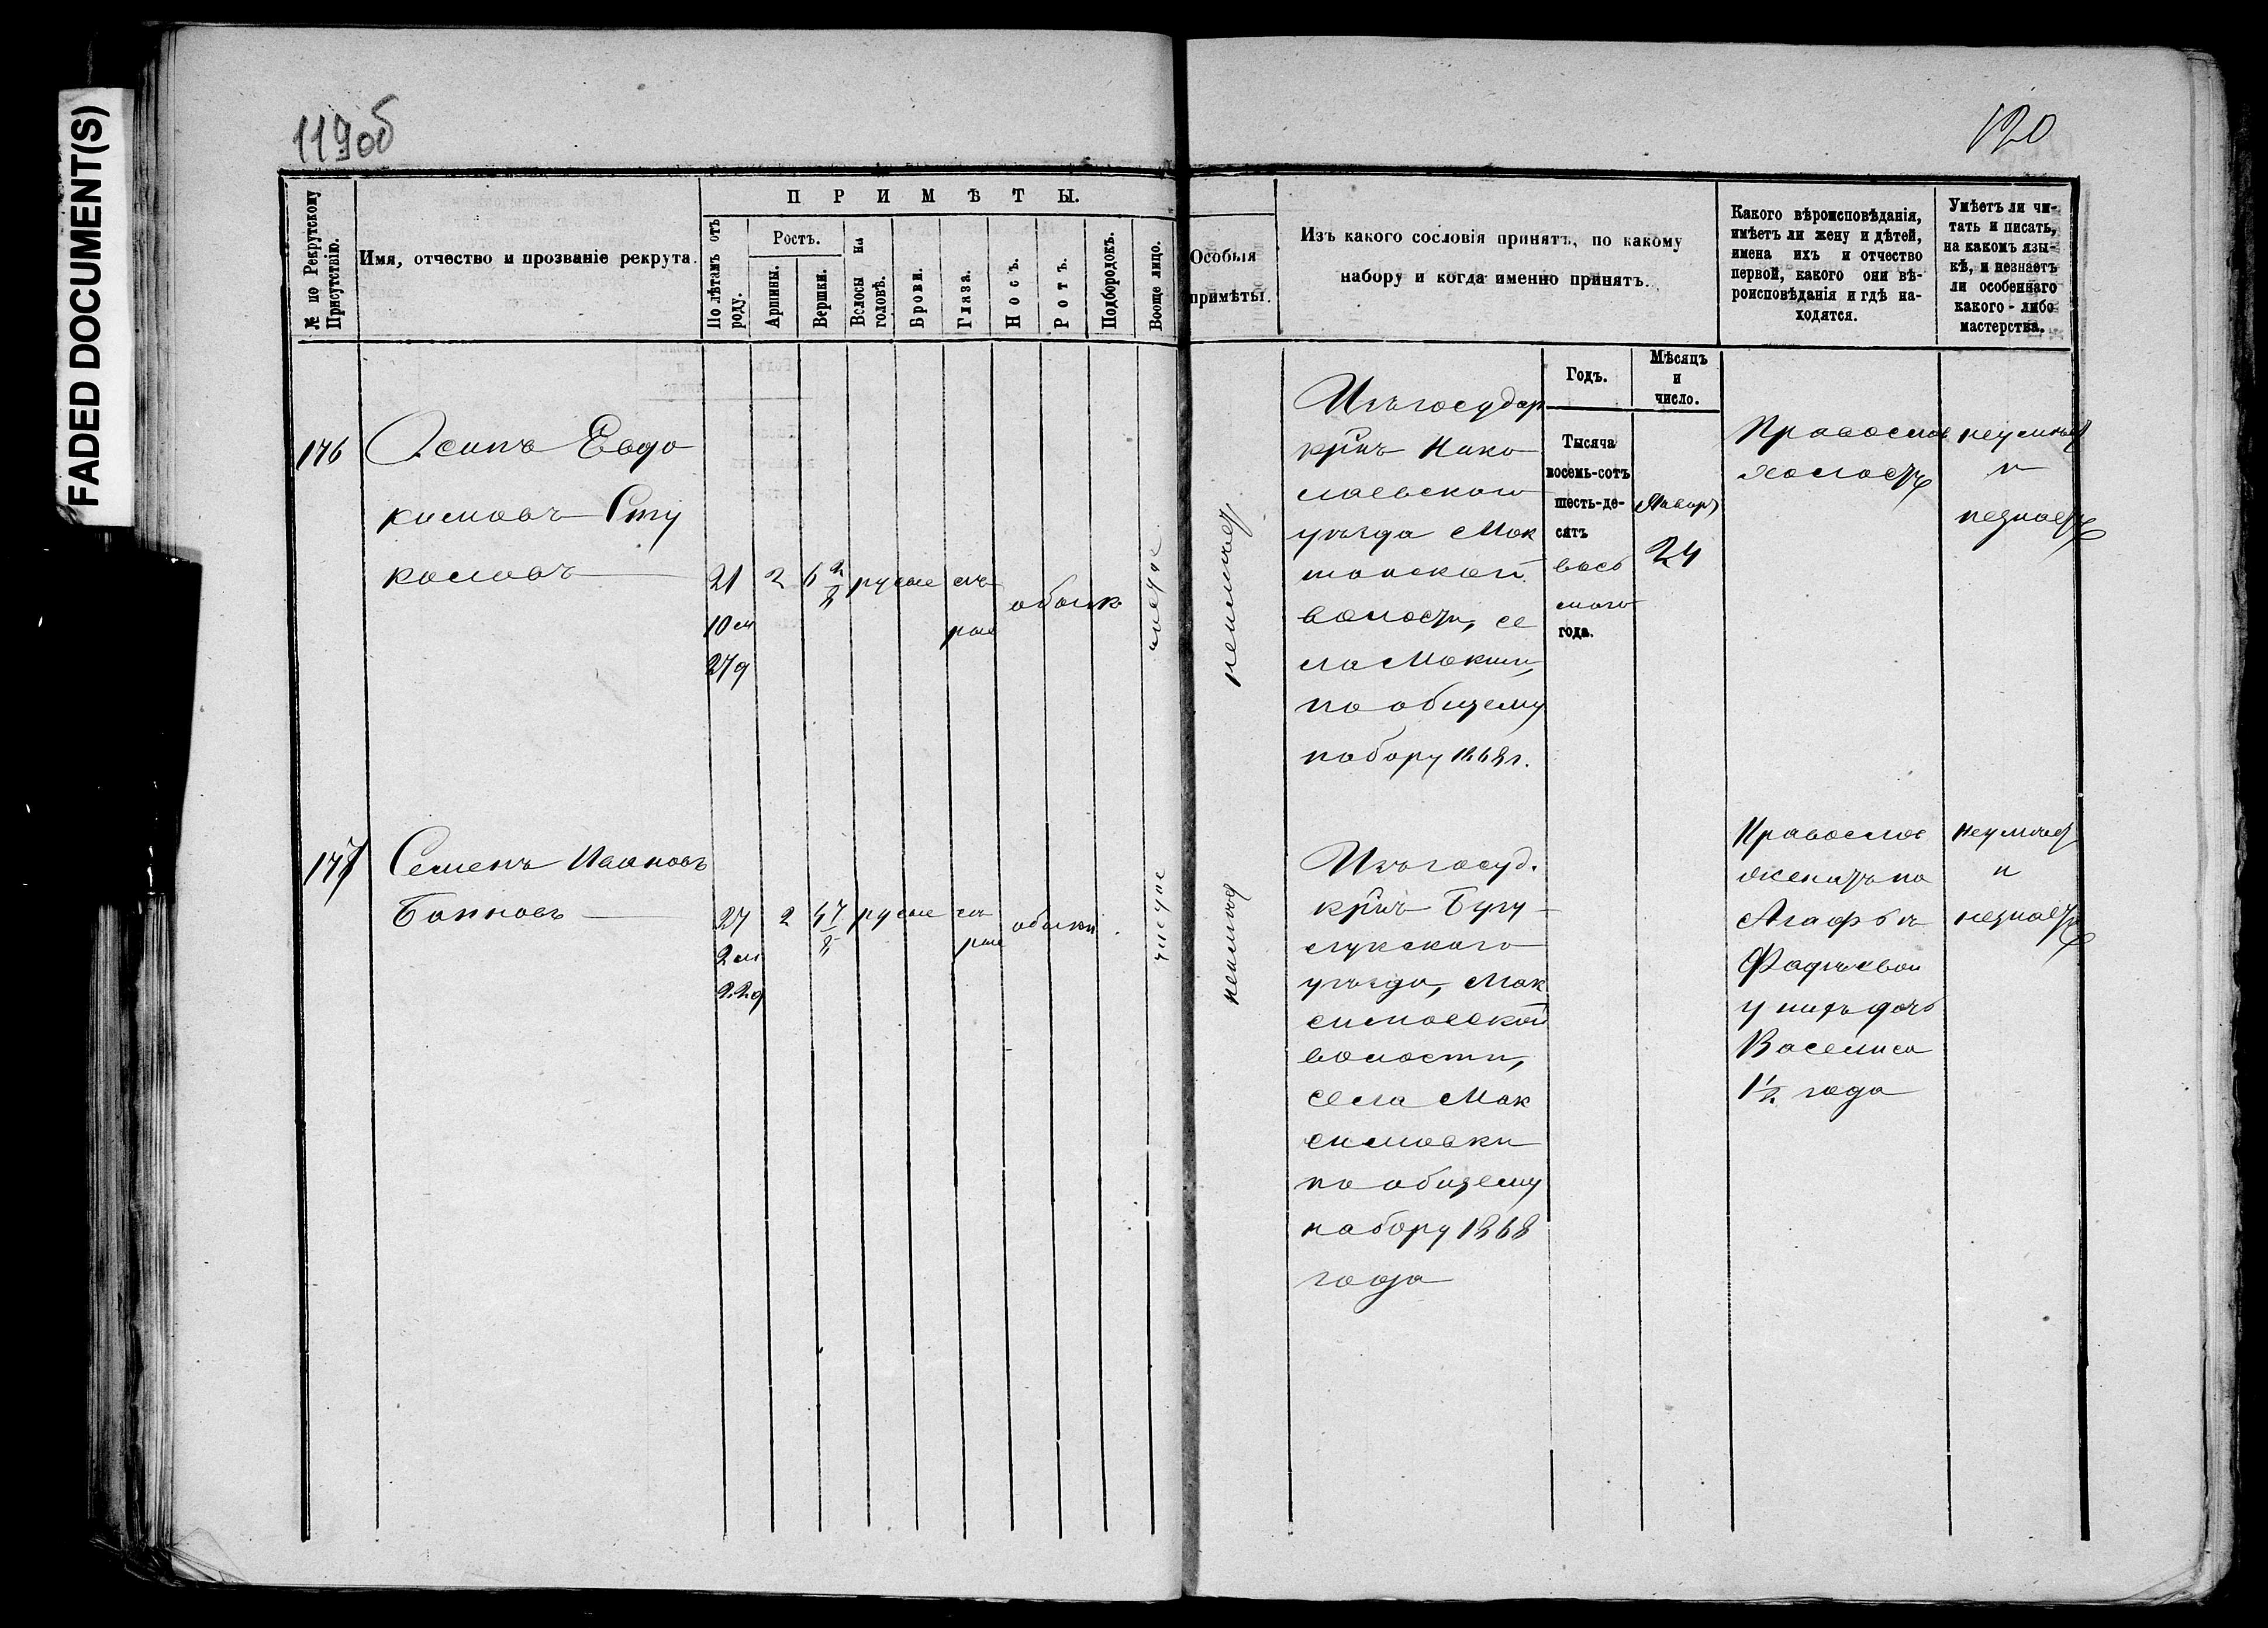 FADED DOCUMENT(S)
119об
120
№ по Рекрутскому Присутствію.
Имя, отчество и прозваніе рекрута.
ПРИМѢТЫ.
По лѣтамъ отъ роду.
Ростъ.
Аршины.
Вершки.
Волосы на головѣ.
Брови.
Глаза.
Носъ.
Ротъ.
Подбородокъ.
Вообще лицо.
Особыя
примѣты.
Изъ какого сословія принятъ, по какому
набору и когда именно принятъ.
Какого вѣроисповѣданія,
имѣетъ ли жену и дѣтей,
имена ихъ и отчество
первой, какого они вѣ-
роисповѣданія и гдѣ на-
ходятся.
Умѣетъ ли чи-
тать и писать,
на какомъ язы-
кѣ, и незнаетъ
ли особеннаго
какого-либо
мастерства.
Годъ.
Мѣсяцъ
и
число.
176
Осипъ Евдо
кимовъ Сту
каловъ
21
10 м
27 д
2
6 2/8
русые
сѣ
рые
обыкн
чистое
неимѣет
Изъ государ
крнъ Нико
лаевского
уѣзда Мок
шанской
волости, се
ла Мокши,
по общему
набору 1868 г.
Тысяча
восемь-сотъ
шесть-де-
сятъ
вось
маго
года.
Январ
24
Православ
холостъ
неумѣет
и
незнаетъ
177
Семенъ Ивановъ
Банновъ
27
2 м
22 д
2
4 7/8
русые
сѣ
рые
обыкн
чистое
неимѣет
Изъ госуд.
крнъ Бугу
слукского
уѣзда, Мак
симовской
волости,
села Мак
симовки
по общему
набору 1868
года
Православ
женатъ на
Агафьѣ
Фадѣевой
у нихъ дочь
Васелиса
1½ года
неумѣет
и
незнаетъ